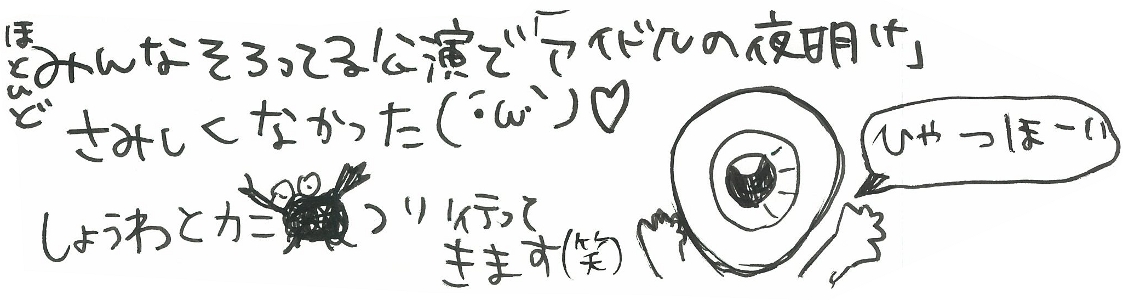 ほとんど
みんなそろってる公演で「アイドルの夜明け」
さみしくなかった(´･ω･`)♡
しょうわとカニつり行って
きます(笑)
ひゃっほーい